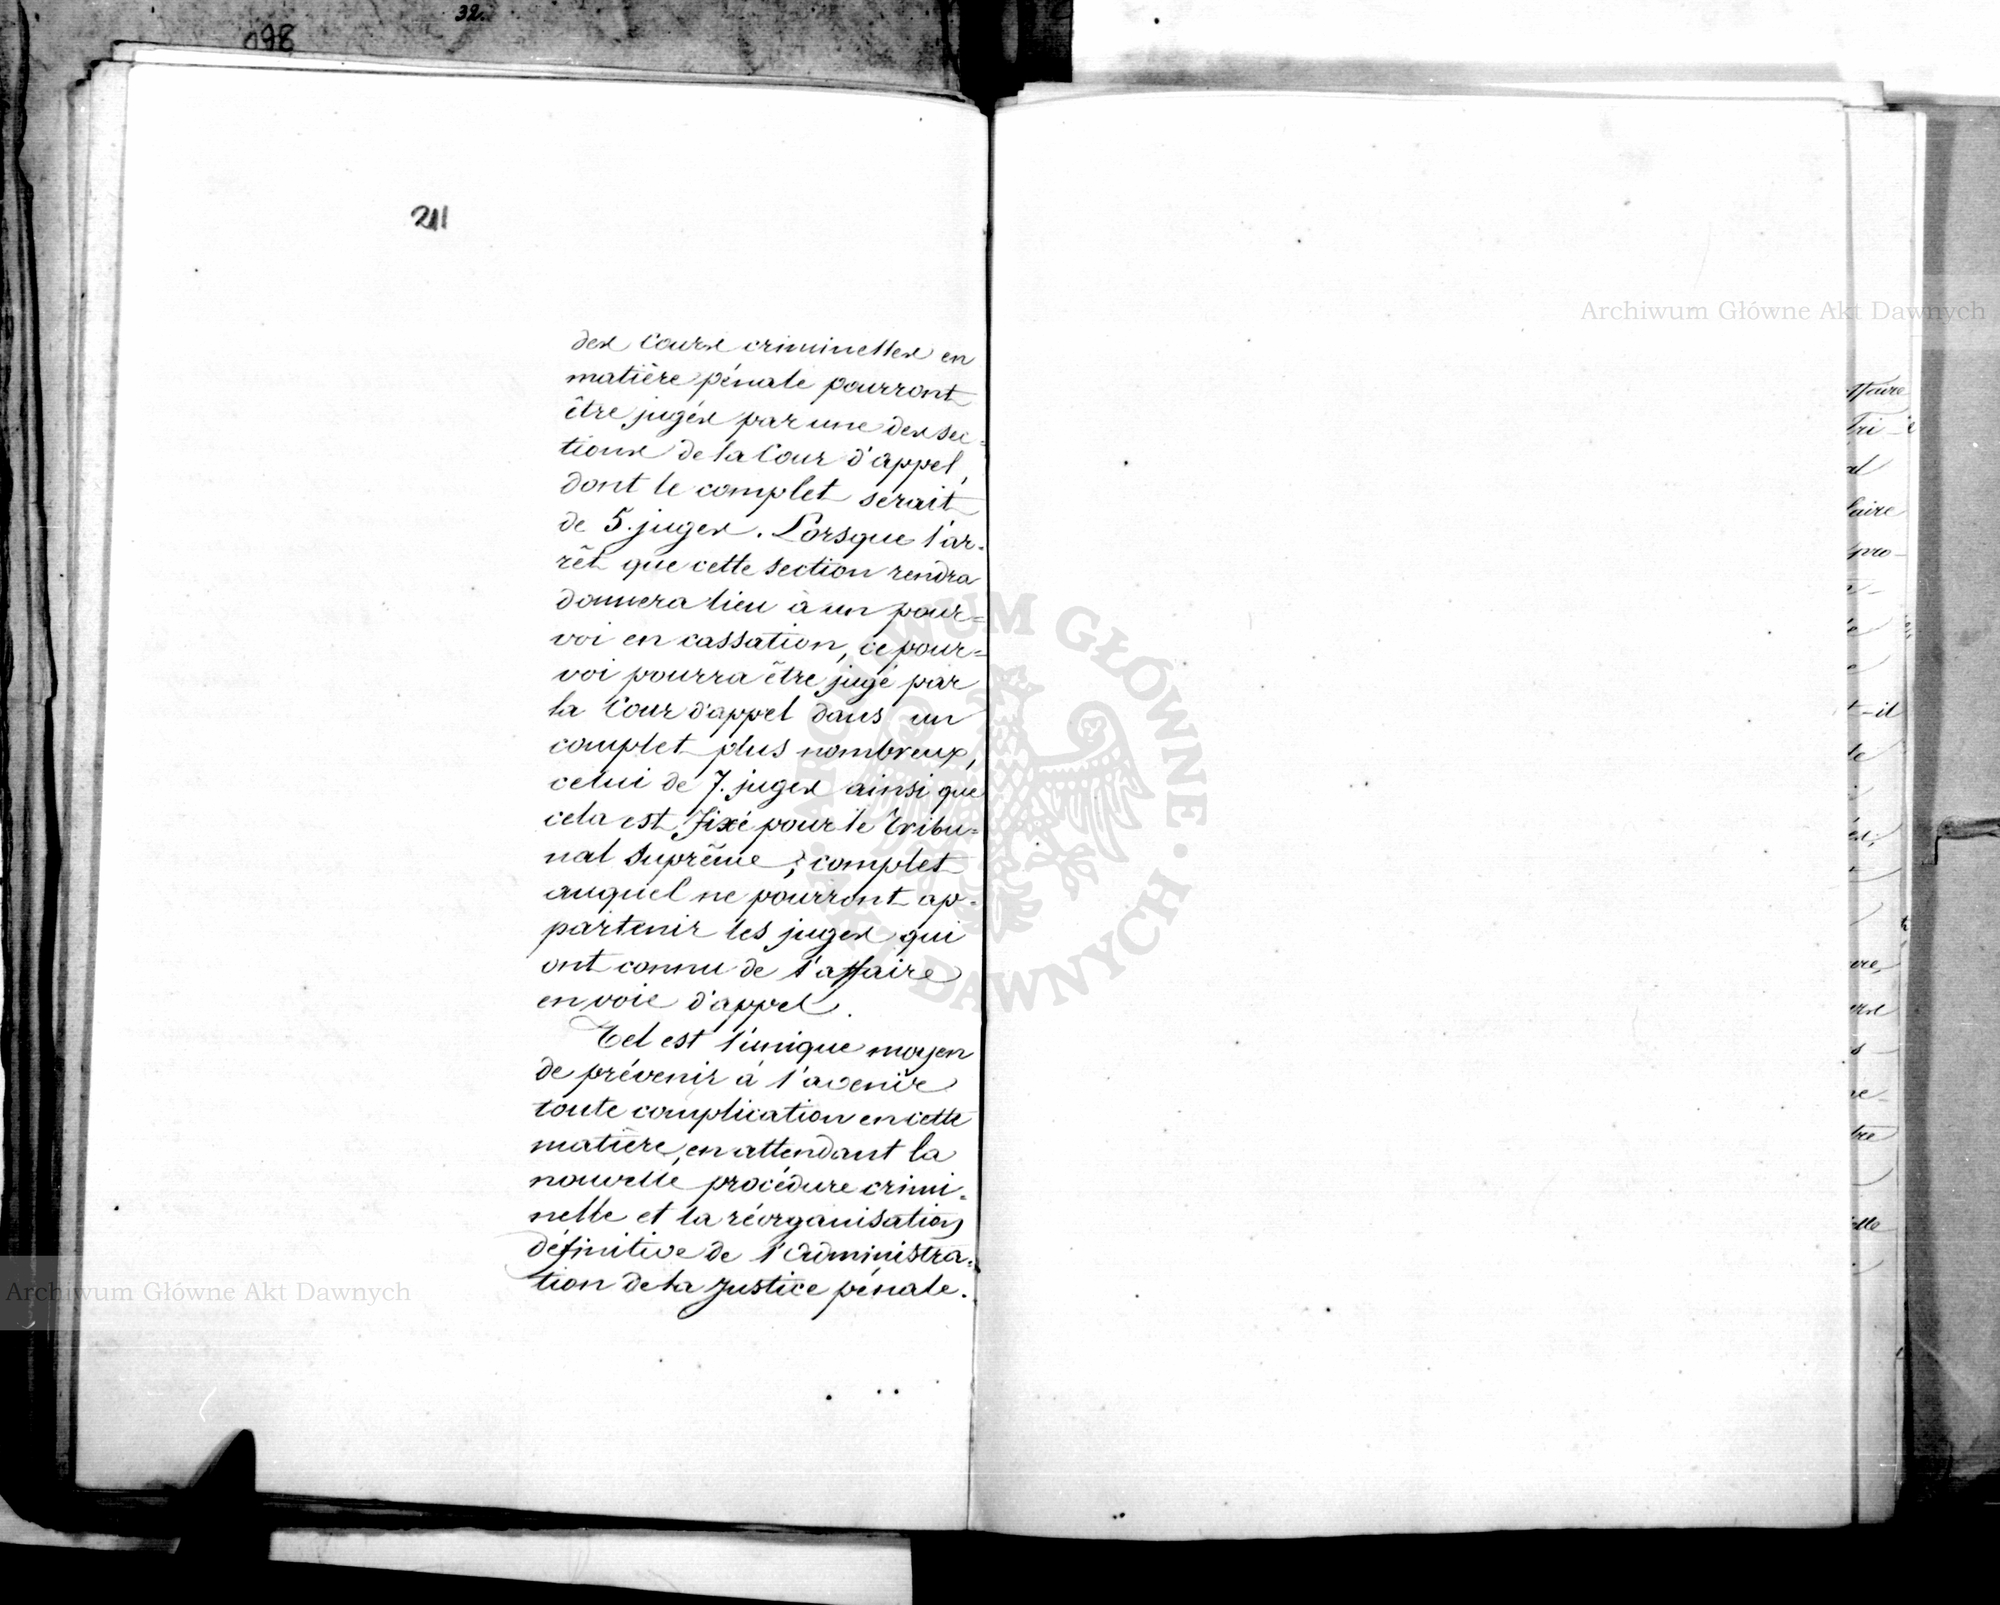 32.
098
211
des Cours criminelles en
matière pénale pourront
être jugés par une des sec-
tions de la Cour d'appel,
dont le complet serait
de 5. juges. Lorsque l'ar-
rêt que cette section rendra
donnera lieu à un pour=
voi en cassation, ce pour=
voi pourra être jugé par
la Cour d'appel dans un
complet plus nombreux,
celui de 7. juges ainsi que
cela est fixé pour le Tribu=
nal Suprême; complet
auquel ne pourront ap-
partenir les juges qui
ont connu de l'affaire
en voie d'appel.
Tel est l'unique moyen
de prévenir à l'avenir
toute complication en cette
matière, en attendant la
nouvelle procédure crimi-
nelle et la réorganisation
définitive de l'administra-
tion de la justice pénale.
Archiwum Główne Akt Dawnych
Archiwum Główne Akt Dawnych
ARCHIWUM GŁÓWNE AKT DAWNYCH